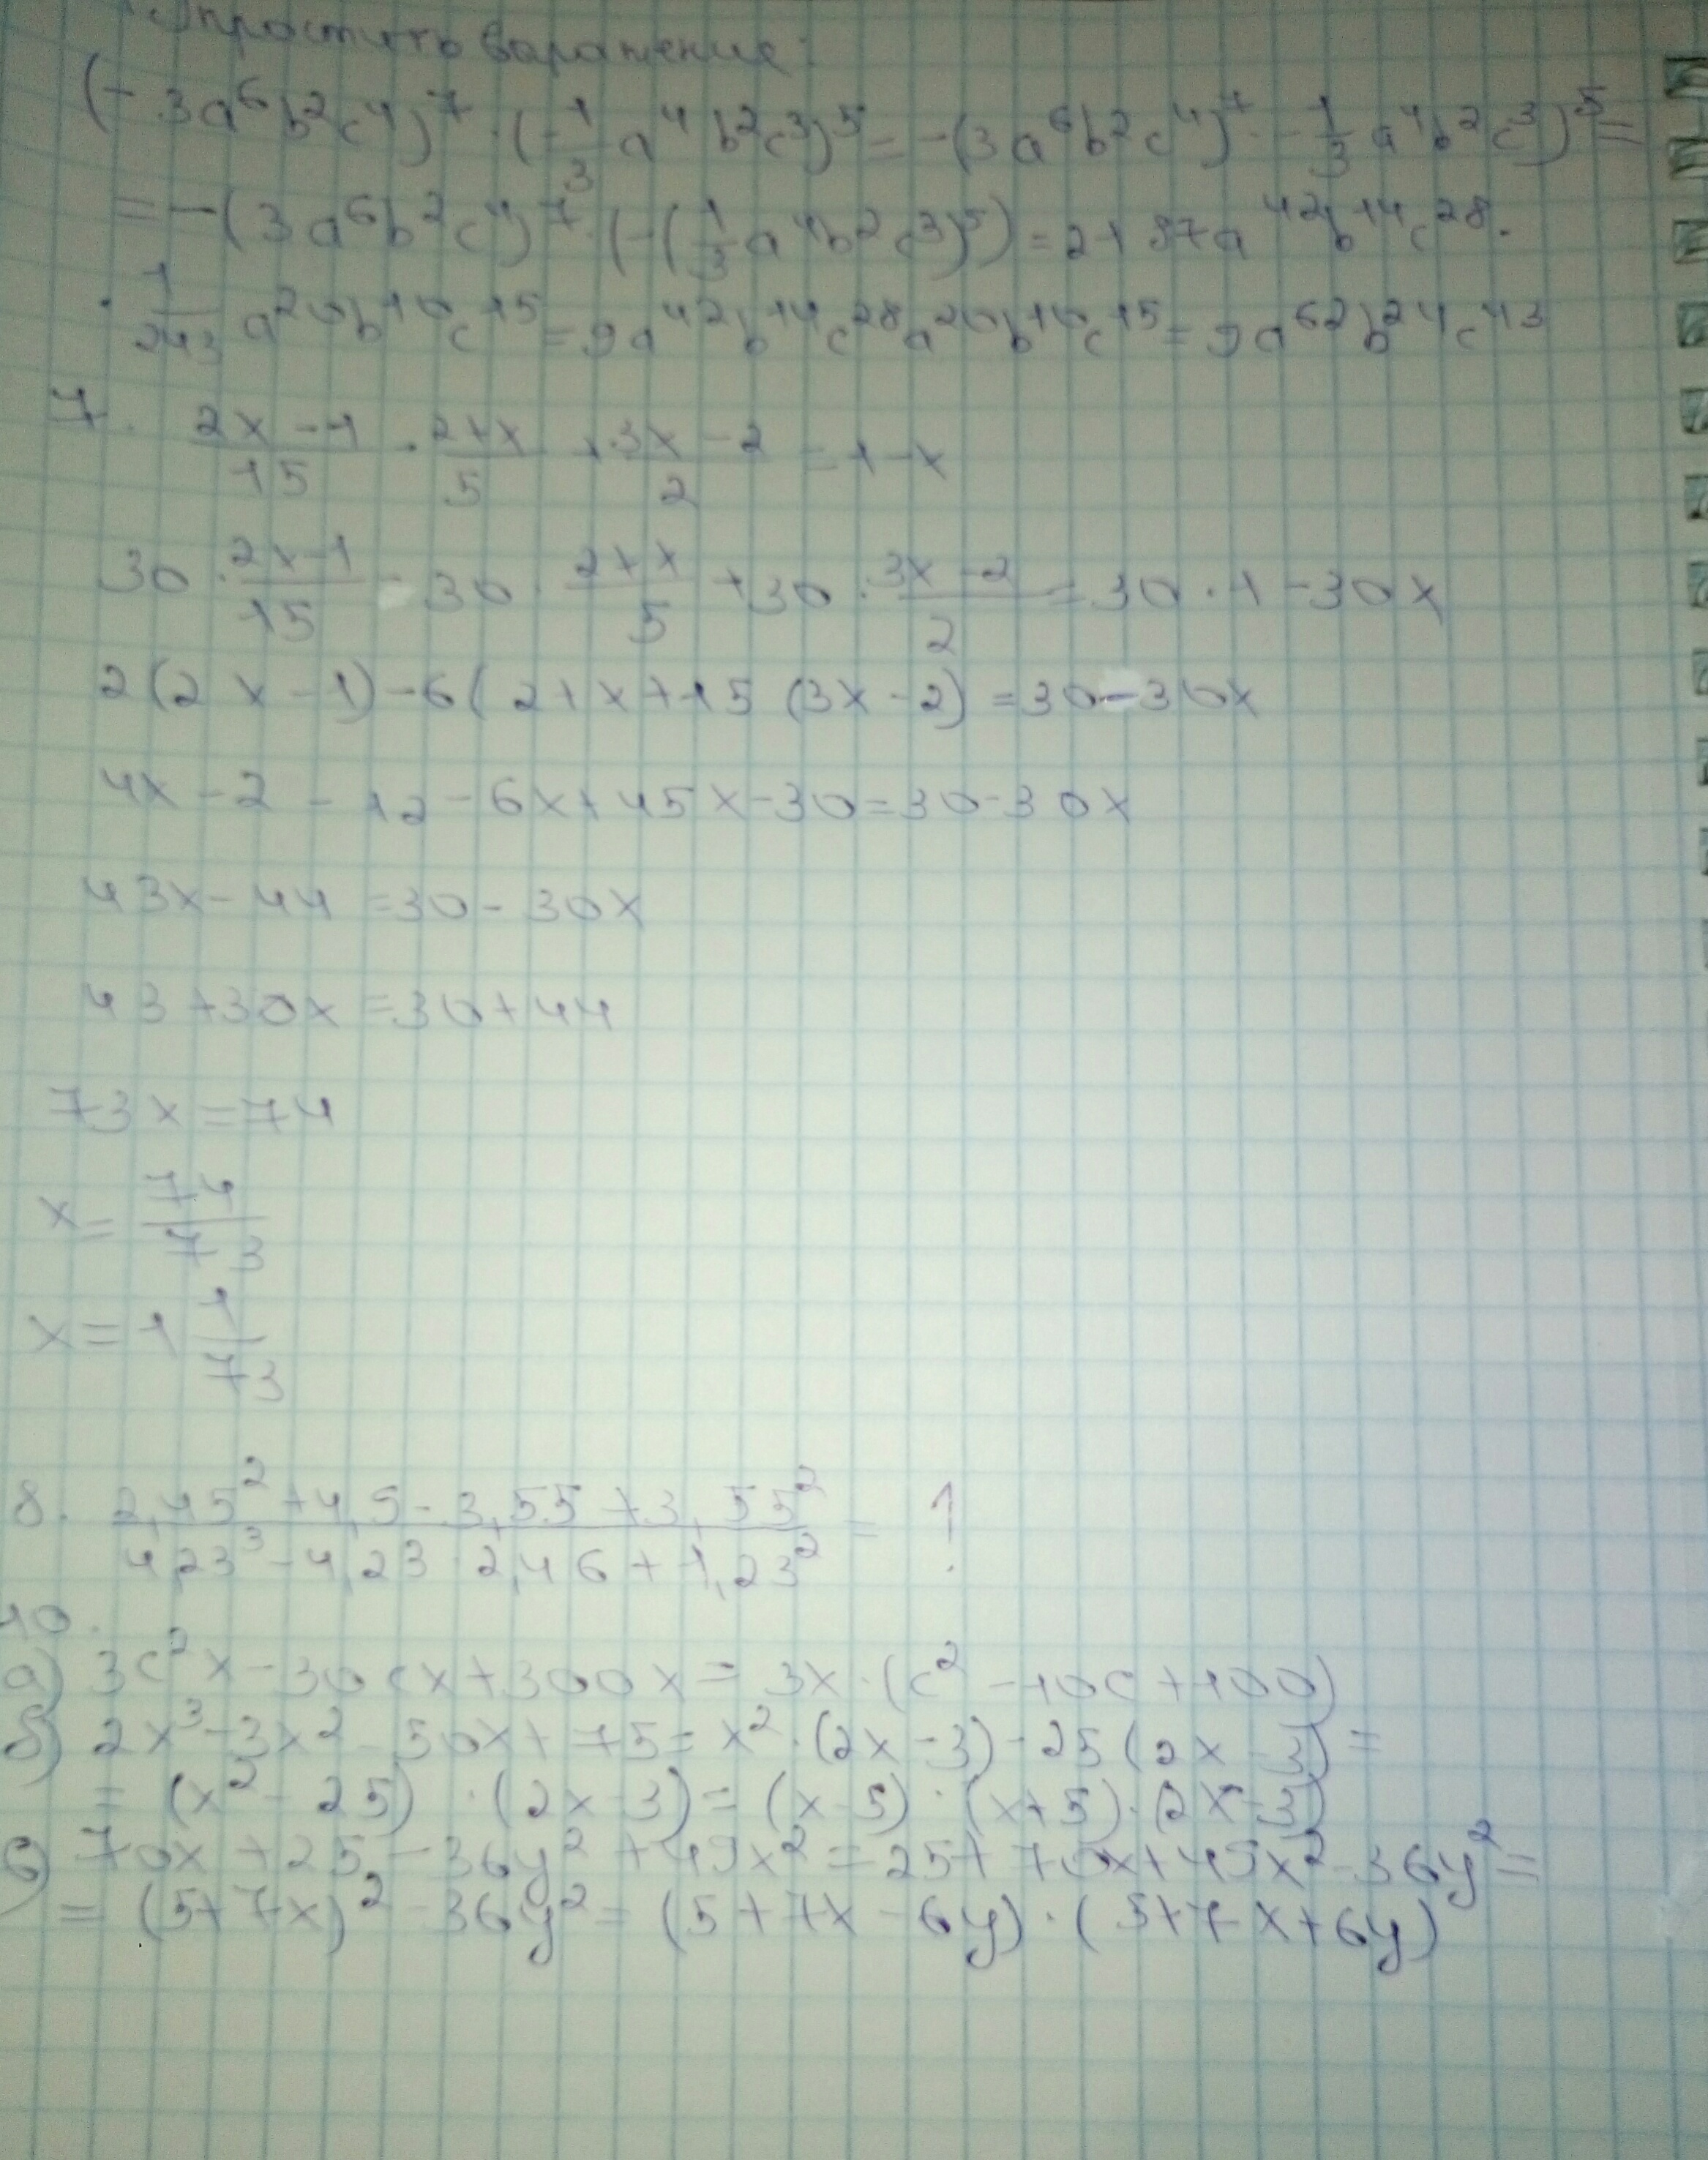 Упростить выражение:
(-3a⁶b²c⁴)⁷ · (-1/3 a⁴b²c³)⁵ = -(3a⁶b²c⁴)⁷ · -1/3 a⁴b²c³)⁵ =
= -(3a⁶b²c⁴)⁷ · (-(1/3 a⁴b²c³)⁵) = 2187a⁴²b¹⁴c²⁸ ·
· 1/243 a²⁰b¹⁰c¹⁵ = 9a⁴²b¹⁴c²⁸a²⁰b¹⁰c¹⁵ = 9a⁶²b²⁴c⁴³
7. (2x-1)/15 · (2+x)/5 + (3x-2)/2 = 1-x
30 · (2x-1)/15 - 30 · (2+x)/5 + 30 · (3x-2)/2 = 30 · 1 - 30x
2(2x-1) - 6(2+x+15(3x-2) = 30-30x
4x-2-12-6x+45x-30=30-30x
43x-44=30-30x
43+30x=30+44
73x=74
x= 74/73
x=1 1/73
8. (2,45²+4,9-3,55+3,55²)/(4,23³-4,23·2,46+1,23²) = ?
10.
а) 3c²x-30cx+300x= 3x·(c²-10c+100)
б) 2x³-3x²-50x+75=x²·(2x-3)-25(2x-3)=
= (x²-25)·(2x-3)=(x-5)·(x+5)·(2x-3)
в) 70x+25-36y²+49x²=25+70x+49x²-36y²=
= (5+7x)²-36y²=(5+7x-6y)·(5+7x+6y)